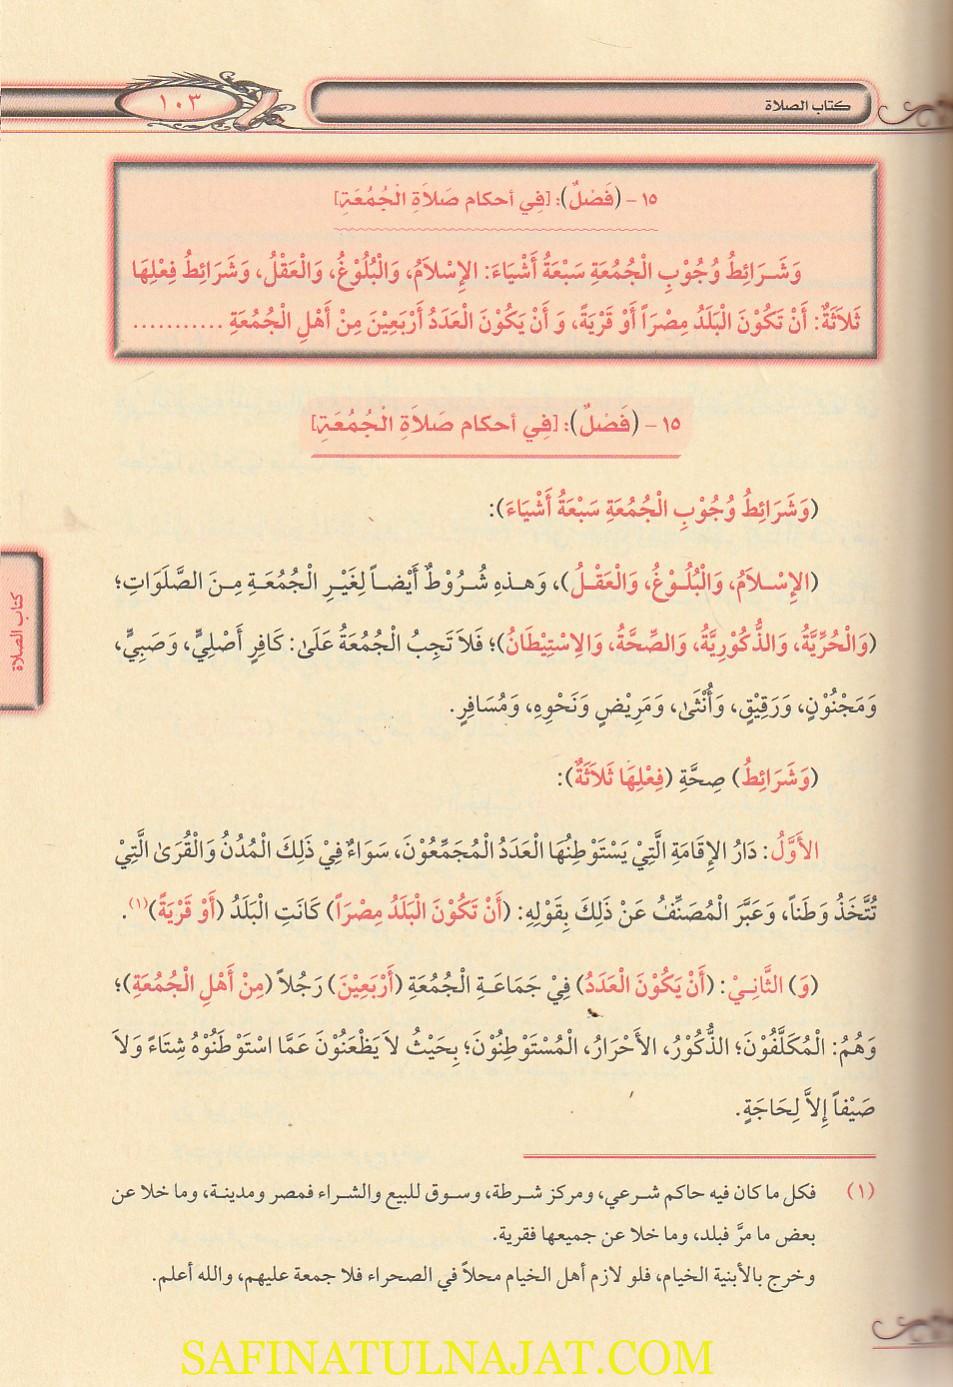 كتاب الصلاة
١٠٣
١٥ - (فَصْلٌ): [فِي أحكام صَلاَةِ الْجُمُعَةِ]
وَشَـرَائِطُ وُجُوْبِ الْجُمُعَةِ سَبْعَةُ أَشْيَاءَ: الإِسْلاَمُ، وَالْبُلُوْغُ، وَالْعَقْلُ، وَشَرَائِطُ فِعْلِهَا
ثَلاَثَةٌ: أَنْ تَكُوْنَ الْبَلَدُ مِصْرَاً أَوْ قَرْيَةً، وَ أَنْ يَكُوْنَ الْعَدَدُ أَرْبَعِيْنَ مِنْ أَهْلِ الْجُمُعَةِ ...........
١٥ - (فَصْلٌ): [فِي أحكام صَلاَةِ الْجُمُعَةِ]
(وَشَرَائِطُ وُجُوْبِ الْجُمُعَةِ سَبْعَةُ أَشْيَاءَ):
(الإِسْـلاَمُ، وَالْبُلُـوْغُ، وَالْعَقْـلُ)، وَهـذِهِ شُـرُوْطٌ أَيْضـاً لِغَيْرِ الْجُمُعَـةِ مِـنَ الصَّلَوَاتِ؛
(وَالْحُرِّيَّةُ، وَالذُّكُوْرِيَّةُ، وَالصِّحَّةُ، وَالِاسْتِيْطَانُ)؛ فَلاَ تَجِبُ الْجُمُعَةُ عَلَىٰ: كَافِرٍ أَصْلِيٍّ، وَصَبِيٍّ،
وَمَجْنُوْنٍ، وَرَقِيْقٍ، وَأُنْثَىٰ، وَمَرِيْضٍ وَنَحْوِهِ، وَمُسَافِرٍ.
(وَشَرَائِطُ) صِحَّةِ (فِعْلِهَا ثَلاَثَةٌ):
الأَوَّلُ: دَارُ الإِقَامَةِ الَّتِيْ يَسْتَوْطِنُهَا الْعَدَدُ الْمُجَمِّعُوْنَ، سَوَاءٌ فِيْ ذَلِكَ الْمُدُنُ وَالْقُرَىٰ الَّتِيْ
تُتَّخَذُ وَطَناً، وَعَبَّرَ الْمُصَنِّفُ عَنْ ذَلِكَ بِقَوْلِهِ: (أَنْ تَكُوْنَ الْبَلَدُ مِصْرَاً) كَانَتِ الْبَلَدُ (أَوْ قَرْيَةً)(١).
(وَ) الثَّانِـيْ: (أَنْ يَكُوْنَ الْعَدَدُ) فِيْ جَمَاعَـةِ الْجُمُعَةِ (أَرْبَعِيْنَ) رَجُلاً (مِنْ أَهْلِ الْجُمُعَةِ)؛
وَهُمُ: الْمُكَلَّفُوْنَ؛ الذُّكُوْرُ، الأَحْرَارُ، الْمُسْتَوْطِنُوْنَ؛ بِحَيْثُ لاَ يَظْعَنُوْنَ عَمَّا اسْتَوْطَنُوْهُ شِتَاءً وَلاَ
صَيْفاً إِلاَّ لِحَاجَةٍ.
(١) فكل ما كان فيه حاكم شـرعي، ومركز شـرطة، وسوق للبيع والشـراء فمصر ومدينـة، وما خلا عن
بعض ما مرَّ فبلد، وما خلا عن جميعها فقرية.
وخرج بالأبنية الخيام، فلو لازم أهل الخيام محلاً في الصحراء فلا جمعة عليهم، والله أعلم.
كتاب الصلاة
SAFINATULNAJAT.COM